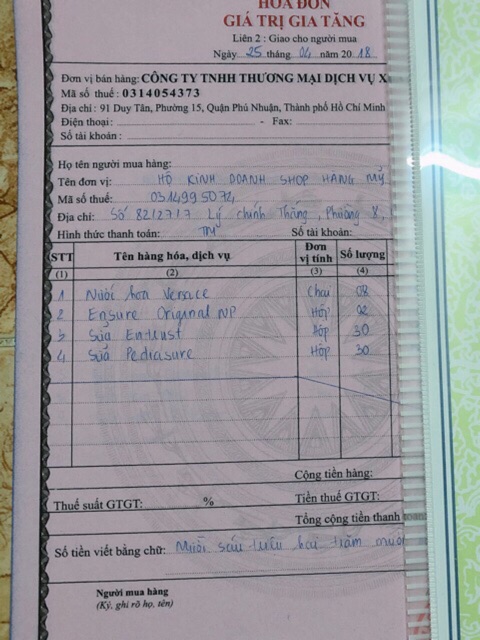 HÓA ĐƠN
GIÁ TRỊ GIA TĂNG
Liên 2 : Giao cho người mua
Ngày 25 tháng 04 năm 2018
Đơn vị bán hàng: CÔNG TY TNHH THƯƠNG MẠI DỊCH VỤ X
Mã số thuế : 0314054373
Địa chỉ : 91 Duy Tân, Phường 15, Quận Phú Nhuận, Thành phố Hồ Chí Minh
Điện thoại : - Fax:
Số tài khoản :
Họ tên người mua hàng:
Tên đơn vị: HỘ KINH DOANH SHOP HÀNG MỸ
Mã số thuế: 0314995074
Địa chỉ: Số 82/2/7 Lý chính Thắng, Phường 8,
Hình thức thanh toán: TM Số tài khoản:
STT Tên hàng hóa, dịch vụ Đơn vị tính Số lượng
(1) (2) (3) (4)
1 Nước hoa Versace Chai 08
2 Ensure Original NP Hộp 02
3 Sữa Entrust Hộp 30
4 Sữa Pediasure Hộp 30
Cộng tiền hàng:
Thuế suất GTGT: % Tiền thuế GTGT:
Tổng cộng tiền thanh
Số tiền viết bằng chữ: Mười sáu triệu hai trăm mười
Người mua hàng
(Ký, ghi rõ họ, tên)